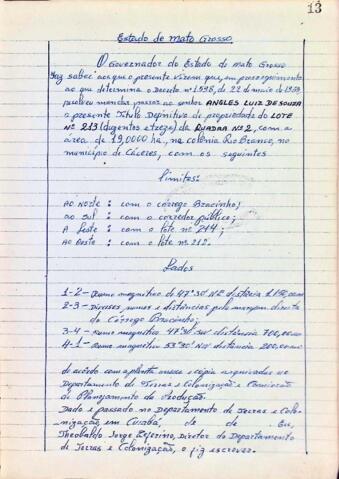 13
Estado de Mato Grosso
O Governador do Estado de Mato Grosso
Faz saber aos que o presente virem que, em prosseguimento
ao que determina o Decreto nº 1598, de 22 de maio de 1953
resolveu mandar passar ao senhor ANGLES LUIZ DE SOUZA
o presente Título Definitivo de propriedade do LOTE
Nº 213 (duzentos e treze) da QUADRA Nº 2, com a
área de 19,0000 ha, na colônia Rio Branco, no
município de Cáceres, com os seguintes
Limites:
AO NORTE : com o córrego Bracinho;
AO SUL : com o corredor público;
A Leste : com o lote nº 214;
AO Oeste : com o lote nº 212.
Lados
1-2- Rumo magnético de 47º30' NE distância
2-3- Divisas, rumos e distâncias pela margem direita
do Córrego Bracinho;
3-4- Rumo magnético 47º30' SW distância 700,00
4-1- Rumo magnético 53º30' NW distância 200,00
de acôrdo com a planta anexa e cópia arquivadas no
Departamento de Terras e Colonização e Comissão
de Planejamento da Produção.
Dado e passado no Departamento de Terras e Colo-
nização, em Cuiabá, de de Eu,
Theobaldo Jorge Zeferino, Diretor do Departamento
de Terras e Colonização, o fiz escrever.